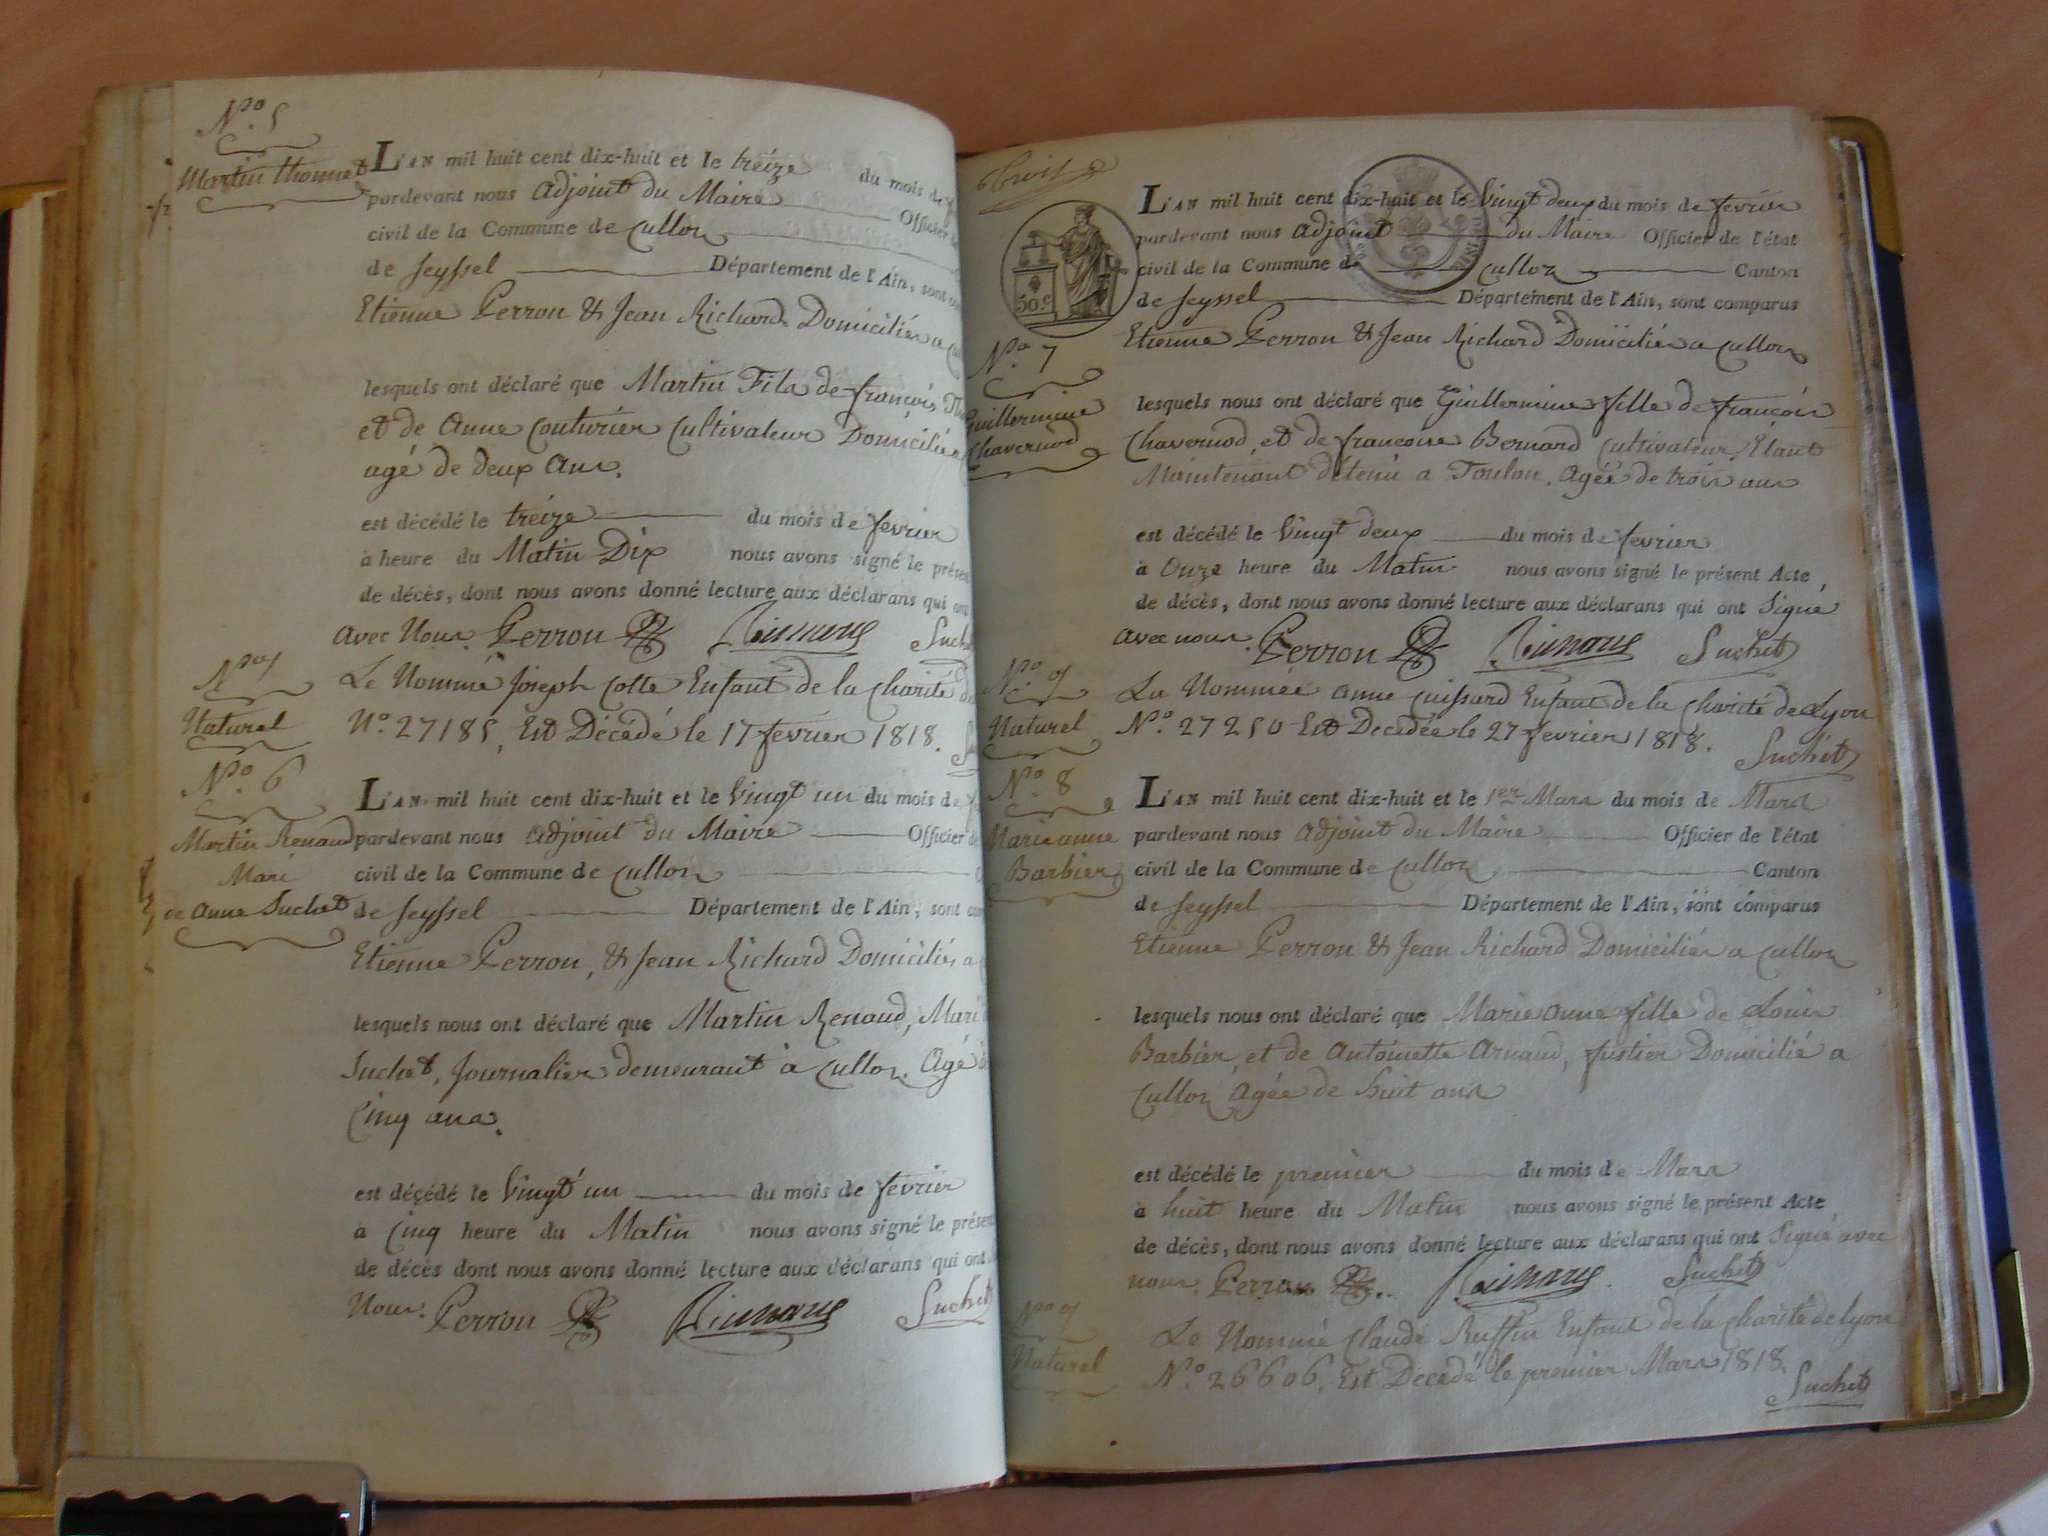 N.º 5
Martin thonnet
L'AN mil huit cent dix-huit et le treize du mois de
pardevant nous Adjoint du Maire Officier
civil de la Commune de Culloz
de Seyssel Département de l'Ain, sont
Etienne Perron & Jean Richard Domiciliés a
lesquels ont déclaré que Martin Fils de françois
et de Anne Couturier Cultivateur Domicilié
agé de deux Ans.
est décédé le treize du mois de fevrier
à heure du Matin Dix nous avons signé le présent
de décès, dont nous avons donné lecture aux déclarans qui ont
avec Nous. Perron Suchet
N.º 9
Naturel
Le Nommé Joseph Colte Enfant de la Charité
N.º 27185, Est Décédé le 17 fevrier 1818.
N.º 6
Martin Renaud
Mari
de Anne Suchet
L'AN mil huit cent dix-huit et le Vingt un du mois de
pardevant nous adjoint du Maire Officier de
civil de la Commune de Culloz
de Seyssel Département de l'Ain, sont
Etienne Perron, & Jean Richard Domiciliés a
lesquels nous ont déclaré que Martin Renaud, Mari
Suchet, Journalier demeurant à Culloz. Agé
Cinq ans.
est décédé le Vingt un du mois de fevrier
à Cinq heure du Matin nous avons signé le présent
de décès dont nous avons donné lecture aux déclarans qui ont
Nous. Perron Suchet
trois
50.c
L'AN mil huit cent dix-huit et le Vingt deux du mois de fevrier
pardevant nous adjoint du Maire Officier de l'état
civil de la Commune de Culloz Canton
de Seyssel Département de l'Ain, sont comparus
Etienne Perron & Jean Richard Domiciliés a Culloz
N.º 7
Guillermine
Chavernod
lesquels nous ont déclaré que Guillermine fille de francois
Chavernod, et de francoise Bernard Cultivateur, Etant
Maintenant détenu a Toulon. Agée de trois ans
est décédé le Vingt deux du mois de fevrier
à Onze heure du Matin nous avons signé le présent Acte
de décès, dont nous avons donné lecture aux déclarans qui ont Signé
avec nous. Perron Suchet
N.º 9
Naturel
La Nommée anne Cuissard Enfant de la Charité de Lyon
N.º 27250 Est Decedée le 27 fevrier 1818. Suchet
N.º 8
Marie anne
Barbier
L'AN mil huit cent dix-huit et le 1er Mars du mois de Mars
pardevant nous Adjoint du Maire Officier de l'état
civil de la Commune de Culloz Canton
de Seyssel Département de l'Ain, sont comparus
Etienne Perron & Jean Richard Domiciliés a Culloz
lesquels nous ont déclaré que Marie anne fille de Louis
Barbier, et de Antoinette Arnaud, fustier Domicilié a
Culloz Agée de huit ans
est décédé le premier du mois de Mars
à huit heure du Matin nous avons signé le présent Acte
de décès, dont nous avons donné lecture aux déclarans qui ont Signé avec
nous. Perron Suchet
N.º 9
Naturel
Le Nommé Claude Ruffin Enfant de la Charité de Lyon
N.º 26606. Est Decédé le premier Mars 1818.
Suchet